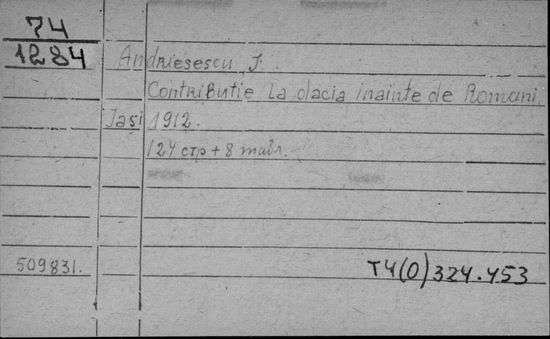 74
1284
Andriesescu J.
Contributie la dacia inainte de Romani
Jaşi 1912.
124 стр + 8 табл.
509831.
T4(0)324.453